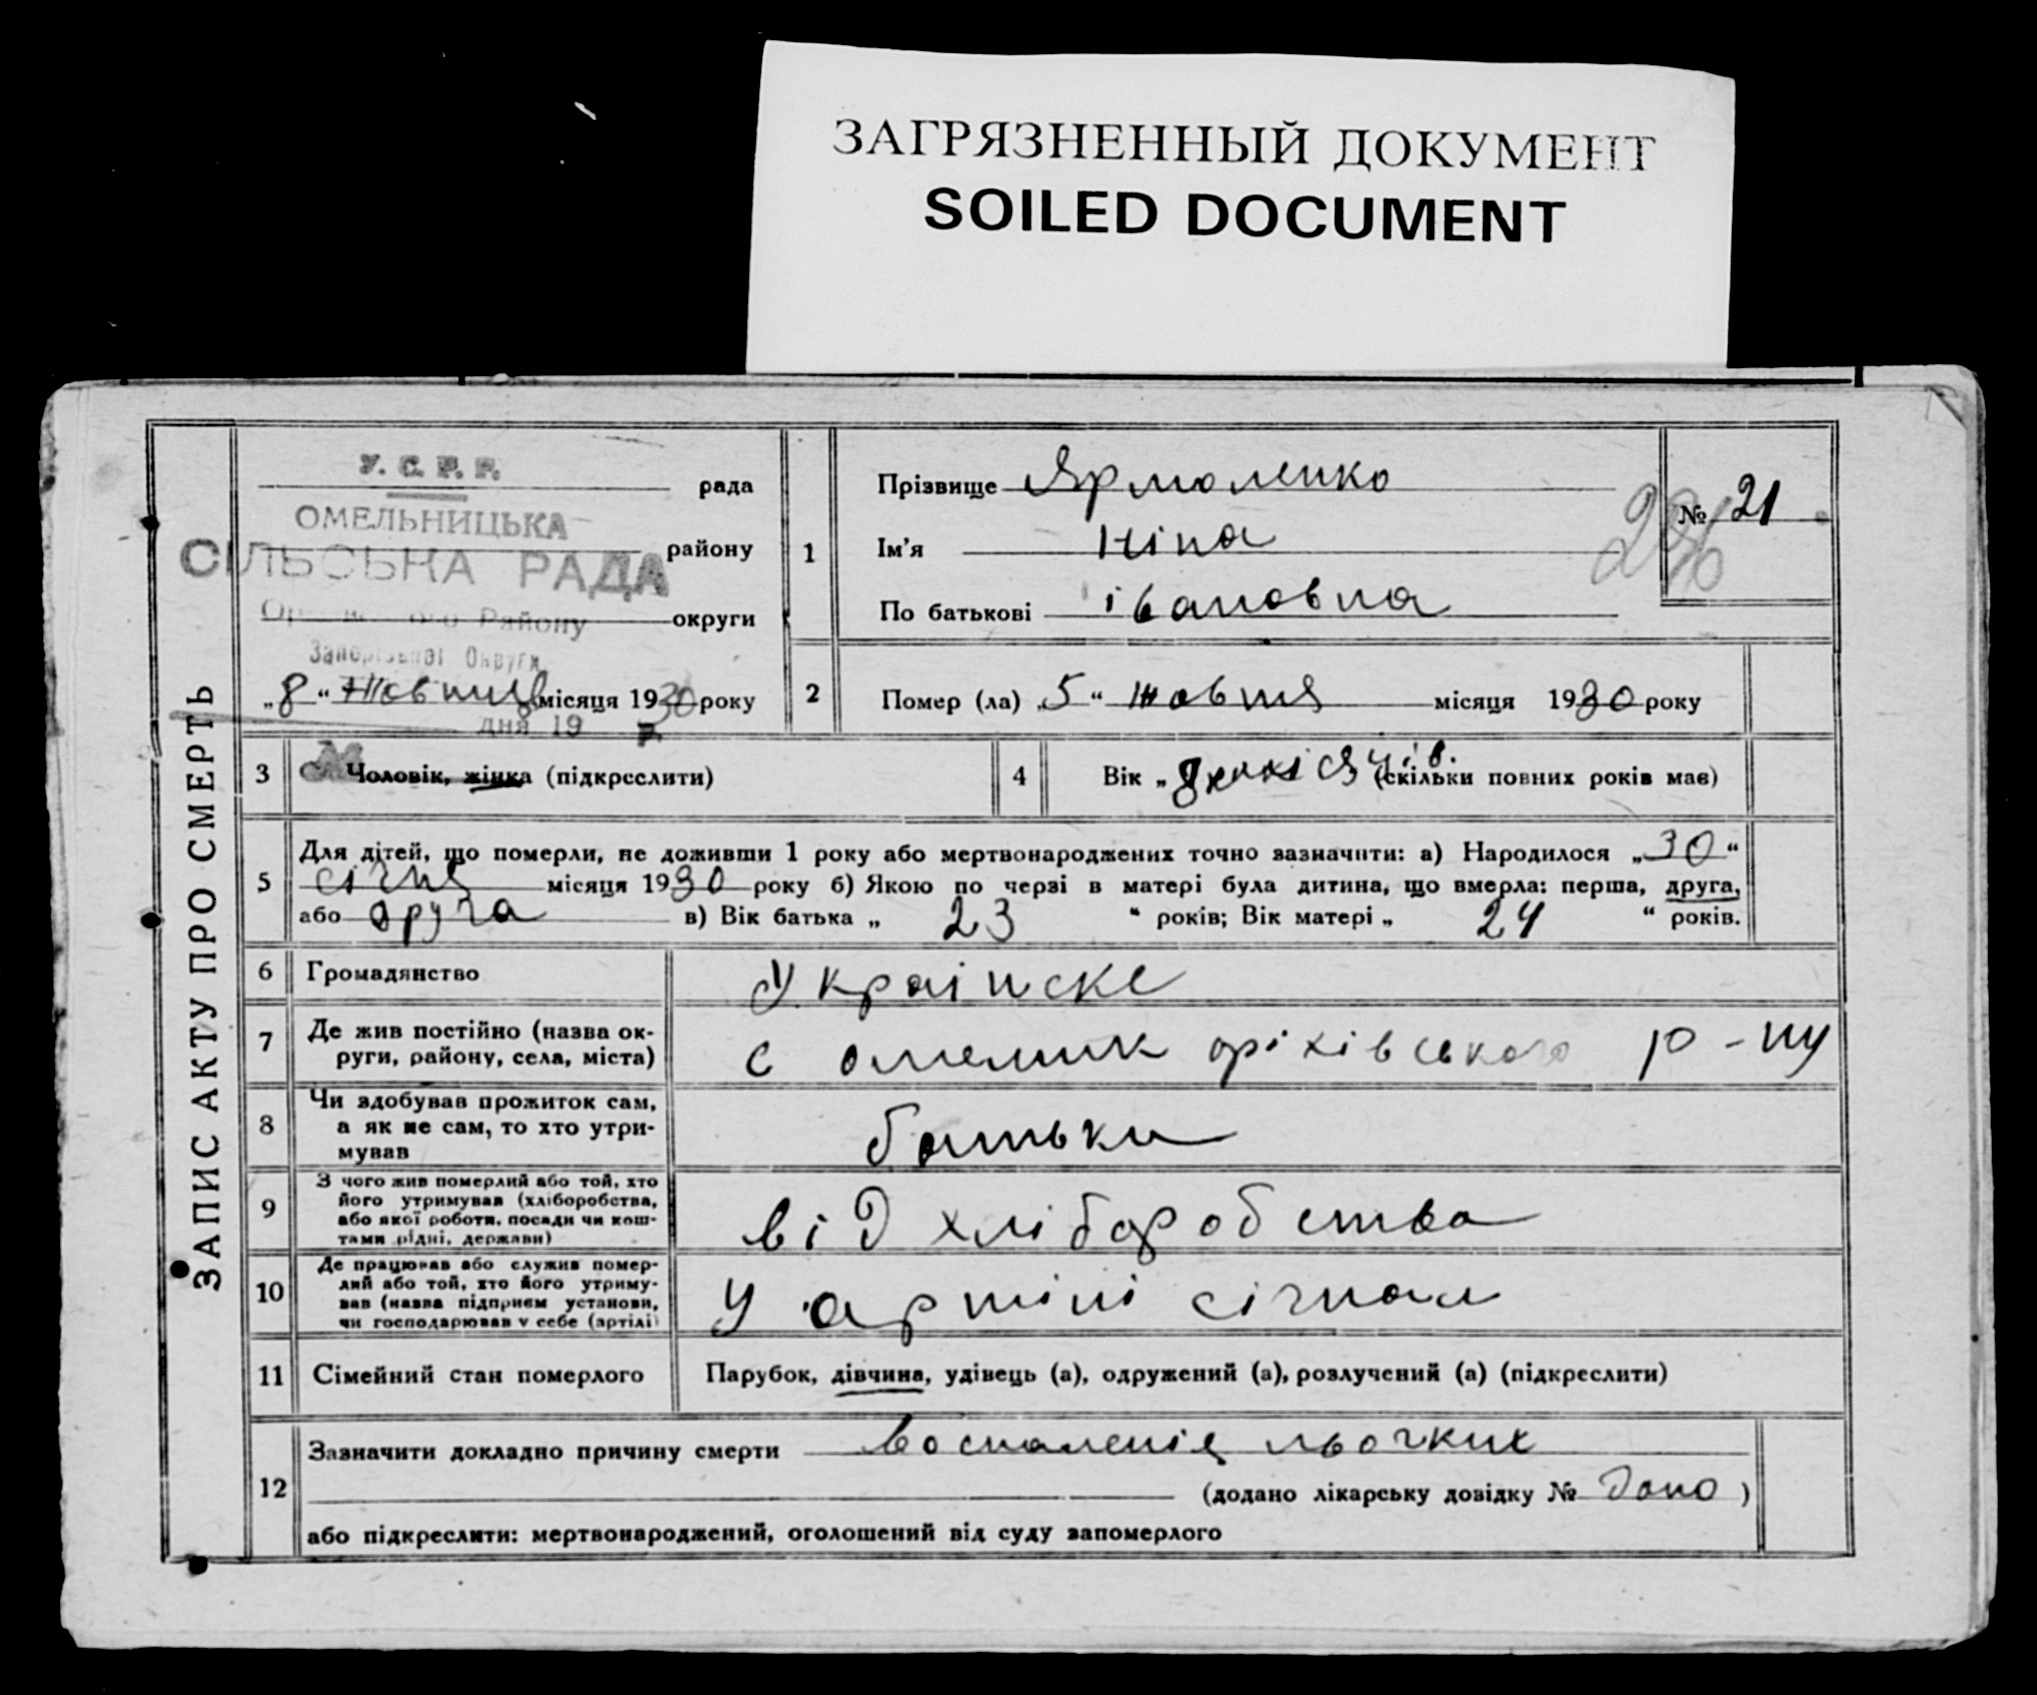 ЗАГРЯЗНЕННЫЙ ДОКУМЕНТ
SOILED DOCUMENT
ЗАПИС АКТУ ПРО СМЕРТЬ
У. С. Р. Р.
рада
ОМЕЛЬНИЦЬКА
СІЛЬСЬКА РАДА
району
Району
округи
Запорізької Округи
„8“ Жовтня місяця 1930 року
дня 19
1
Прізвище Ярмоленко
Ім’я Ніна
По батькові івановна
№ 21
2
Помер (ла) „5“ жовтня місяця 1930 року
3
Чоловік, жінка (підкреслити)
4
Вік „8 місяців. (скільки повних років має)
5
Для дітей, що померли, не доживши 1 року або мертвонароджених точно зазначити: а) Народилося „30“
січня місяця 1930 року б) Якою по черзі в матері була дитина, що вмерла: перша, друга,
або друга в) Вік батька „23“ років; Вік матері „24“ років.
6
Громадянство
Украінске
7
Де жив постійно (назва ок-
руги, району, села, міста)
с омелник оріхівського р-ну
8
Чи здобував прожиток сам,
а як не сам, то хто утри-
мував
батьки
9
З чого жив померлий або той, хто
його утримував (хліборобства,
або якої роботи, посади чи кош-
тами рідні, держави)
від хліборобства
10
Де працював або служив помер-
лий або той, хто його утриму-
вав (назва підприєм установи,
чи господарював у себе (артілі)
У артілі сігнал
11
Сімейний стан померлого
Парубок, дівчина, удівець (а), одружений (а), розлучений (а) (підкреслити)
12
Зазначити докладно причину смерти воспаленія льогких
(додано лікарську довідку № дано)
або підкреслити: мертвонароджений, оголошений від суду запомерлого